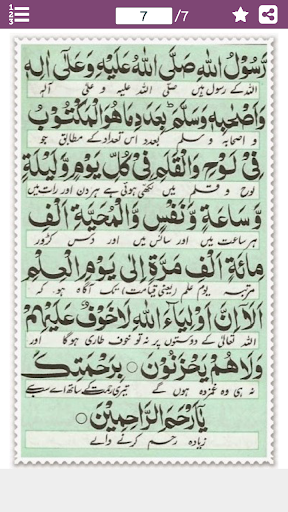 1 2 3 7 /7
رَسُوْلُ اللهِ صَلَّى اللهُ عَلَيْهِ وَعَلٰى اٰلِهٖ
اللہ کے رسول ہیں صلی اللہ علیہ و علی آلہ
وَاَصْحٰبِهٖ وَسَلَّمَ بِعَدَدِ مَا هُوَ الْمَكْتُوْبُ
و اصحابہ و سلم بعدد اس تعداد کے مطابق جو
فِيْ لَوْحِ وَالْقَلَمِ فِيْ كُلِّ يَوْمٍ وَّلَيْلَةٍ
لوح و قلم میں لکھی ہوئی ہے ہر دن اور رات میں
وَّسَاعَةٍ وَّنَفْسٍ وَّالْمَحِيَّةِ اَلْفَ
ہر ساعت میں اور سانس میں اور دس کروڑ
مِائَةِ اَلْفِ مَرَّةٍ اِلٰى يَوْمِ الْعِلْمِ
مرتبہ یوم علم (یعنی قیامت) تک آگاہ ہو کہ
اَلَا اِنَّ اَوْلِيَاءَ اللهِ لَا خَوْفٌ عَلَيْهِمْ
اللہ تعالیٰ کے دوستوں پر نہ تو خوف طاری ہوگا اور
وَلَا هُمْ يَحْزَنُوْنَ ○ بِرَحْمَتِكَ
نہ ہی وہ غمزدہ ہوں گے تیری رحمت کے ساتھ اے سب سے
يَا اَرْحَمَ الرَّاحِمِيْنَ ○
زیادہ رحم کرنے والے